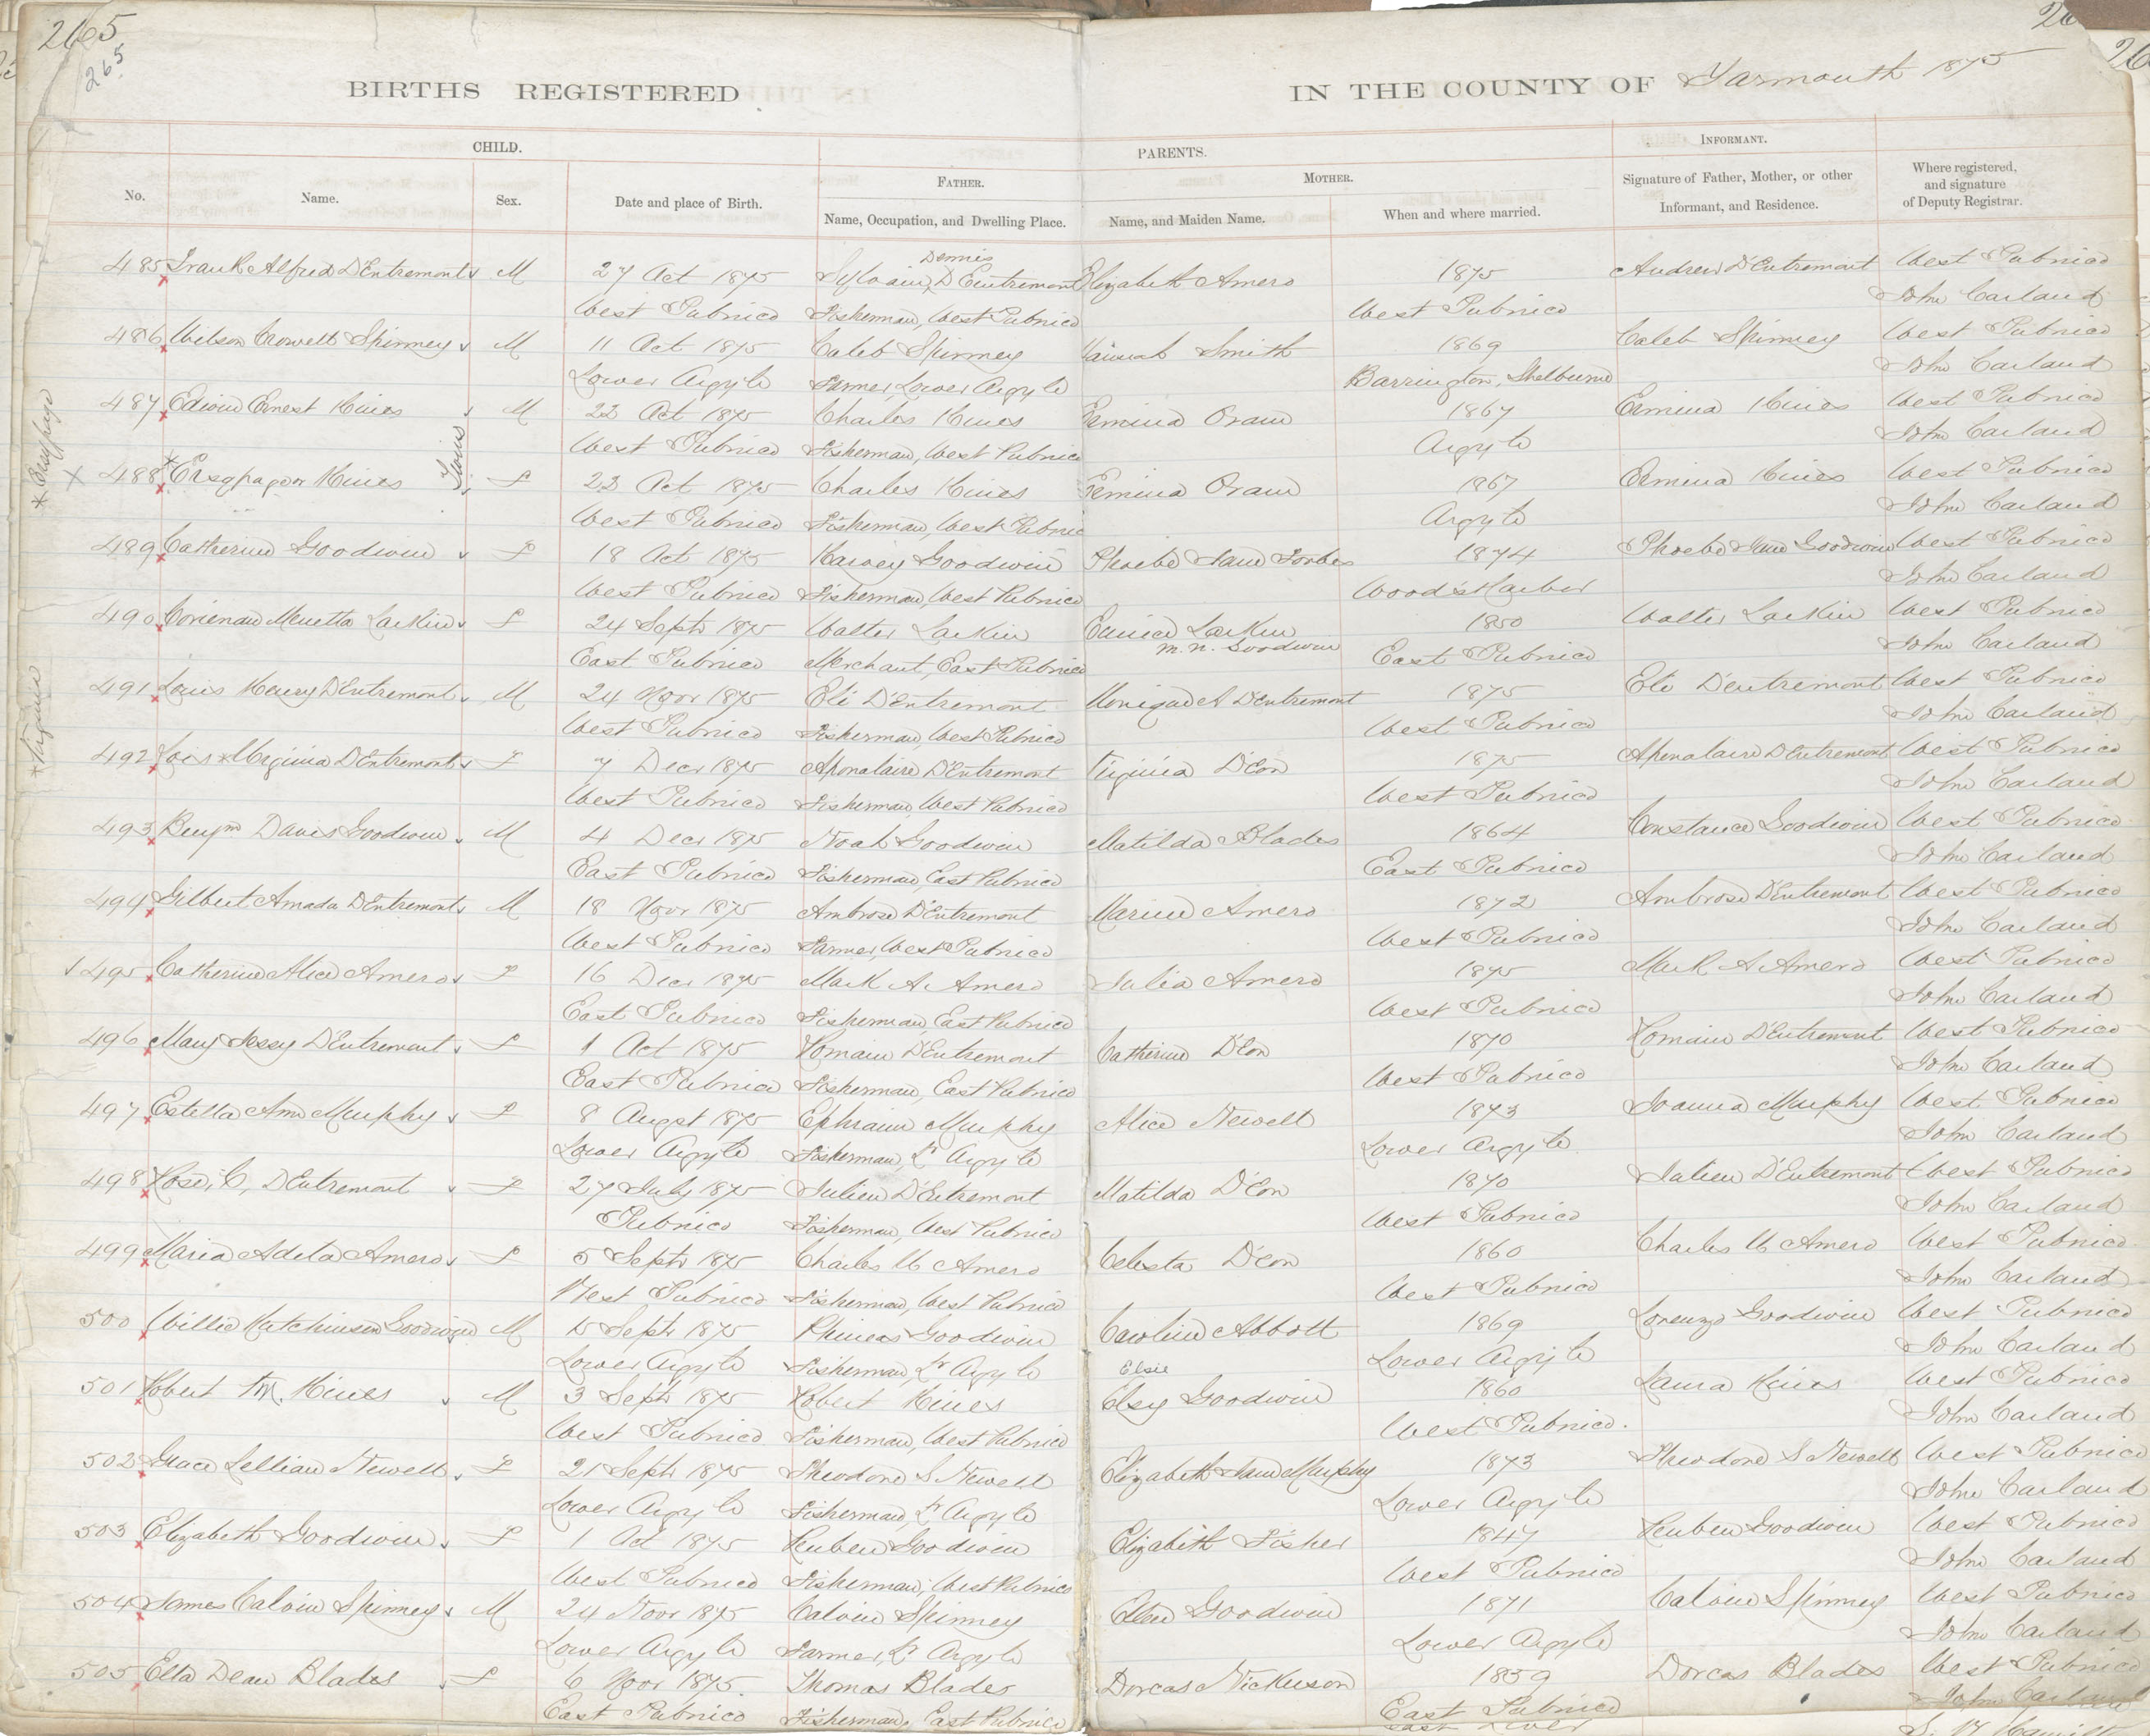 265
265
BIRTHS REGISTERED
IN THE COUNTY OF Yarmouth 1875
CHILD.
PARENTS.
INFORMANT.
No.
Name.
Sex.
Date and place of Birth.
FATHER.
Name, Occupation, and Dwelling Place.
MOTHER.
Name, and Maiden Name.
When and where married.
Signature of Father, Mother, or other
Informant, and Residence.
Where registered,
and signature
of Deputy Registrar.
Dennis
485 Frank Alfred D'Entremont M 27 Oct 1875 Sylvain D'Entremont Elizabeth Amero 1875 Andrew D'Entremont West Pubnico
West Pubnico Fisherman, West Pubnico West Pubnico John Carland
486 Wilson Crowell Spinney M 11 Oct 1875 Caleb Spinney Hannah Smith 1869 Caleb Spinney West Pubnico
Lower Argyle Farmer, Lower Argyle Barrington, Shelburne John Carland
487 Edwin Ernest Hines M 22 Oct 1875 Charles Hines Ermina Oram 1867 Ermina Hines West Pubnico
West Pubnico Fisherman, West Pubnico Argyle John Carland
Twins
X 488 Hines F 23 Oct 1875 Charles Hines Ermina Oram 1867 Ermina Hines West Pubnico
West Pubnico Fisherman, West Pubnico Argyle John Carland
489 Catherine Goodwin F 18 Oct 1875 Harvey Goodwin Phoebe Jane Forbes 1874 Phoebe Jane Goodwin West Pubnico
West Pubnico Fisherman, West Pubnico Wood's Harbor John Carland
490 Menetta Larkin F 24 Septr 1875 Walter Larkin Eunice Larkin 1850 Walter Larkin West Pubnico
m. n. Goodwin
East Pubnico Merchant, East Pubnico East Pubnico John Carland
491 Louis Henry D'Entremont M 24 Novr 1875 Eli D'Entremont D'Entremont 1875 Eli D'Entremont West Pubnico
West Pubnico Fisherman, West Pubnico West Pubnico John Carland
* Virginia
492 Lois * Virginia D'Entremont F 7 Decr 1875 Aponalaire D'Entremont Virginia D'Eon 1875 Aponalaire D'Entremont West Pubnico
West Pubnico Fisherman, West Pubnico West Pubnico John Carland
493 Benjm Davis Goodwin M 4 Decr 1875 Noah Goodwin Matilda Blades 1864 Constance Goodwin West Pubnico
East Pubnico Fisherman, East Pubnico East Pubnico John Carland
494 Gilbert Amada D'Entremont M 18 Novr 1875 Ambrose D'Entremont Marine Amero 1872 Ambrose D'Entremont West Pubnico
West Pubnico Farmer, West Pubnico West Pubnico John Carland
495 Catherine Alice Amero F 16 Decr 1875 Mark A. Amero Julia Amero 1875 Mark A Amero West Pubnico
East Pubnico Fisherman, East Pubnico West Pubnico John Carland
496 Mary D'Entremont F 1 Oct 1875 Romain D'Entremont Catherine D'Eon 1870 Romain D'Entremont West Pubnico
East Pubnico Fisherman, East Pubnico West Pubnico John Carland
497 Estella Ann Murphy F 8 Augst 1875 Ephraim Murphy Alice Newell 1873 Joanna Murphy West Pubnico
Lower Argyle Fisherman, Lr Argyle Lower Argyle John Carland
498 Rose, C, D'Entremont F 27 July 1875 Julien D'Entremont Matilda D'Eon 1870 Julien D'Entremont West Pubnico
Pubnico Fisherman, West Pubnico West Pubnico John Carland
499 Maria Adela Amero F 5 Septr 1875 Charles U Amero Celesta D'Eon 1860 Charles U Amero West Pubnico
West Pubnico Fisherman, West Pubnico West Pubnico John Carland
500 Willie Hutchinson Goodwin M 15 Septr 1875 Phineas Goodwin Caroline Abbott 1869 Lorenzo Goodwin West Pubnico
Lower Argyle Fisherman, Lr Argyle Lower Argyle John Carland
Elsie
501 Robert Hines M 3 Septr 1875 Robert Hines Elsey Goodwin 1860 Laura Hines West Pubnico
West Pubnico Fisherman, West Pubnico West Pubnico. John Carland
502 Grace Lillian Newell F 21 Septr 1875 Theodore S Newell Elizabeth Jane Murphy 1873 Theodore S Newell West Pubnico
Lower Argyle Fisherman, Lr Argyle Lower Argyle John Carland
503 Elizabeth Goodwin F 1 Oct 1875 Reuben Goodwin Elizabeth Fisher 1847 Reuben Goodwin West Pubnico
West Pubnico Fisherman, West Pubnico West Pubnico John Carland
504 James Calvin Spinney M 24 Novr 1875 Calvin Spinney Ellen Goodwin 1871 Calvin Spinney West Pubnico
Lower Argyle Farmer, Lr Argyle Lower Argyle John Carland
505 Ella Dean Blades F 6 Novr 1875. Thomas Blades Dorcas Nickerson 1859 Dorcas Blades West Pubnico
East Pubnico Fisherman, East Pubnico East Pubnico John Carland